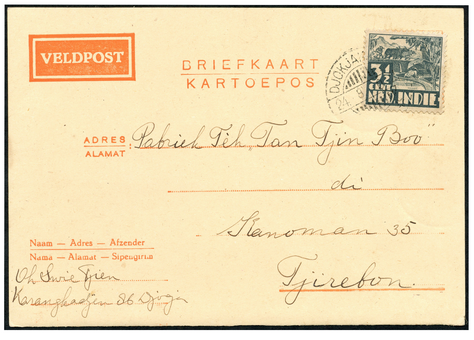 VELDPOST
BRIEFKAART
KARTOEPOS
DJOKJA
24. 9
3½
CENT
NED. INDIE
ADRES
ALAMAT
"Pabriek Teh Tan Tjin Boo"
di
Kanoman 35
Tjirebon.
Naam — Adres — Afzender
Nama — Alamat — Sipengirim
Oh Swie Tjien
Karangkadjen 86 Djogja